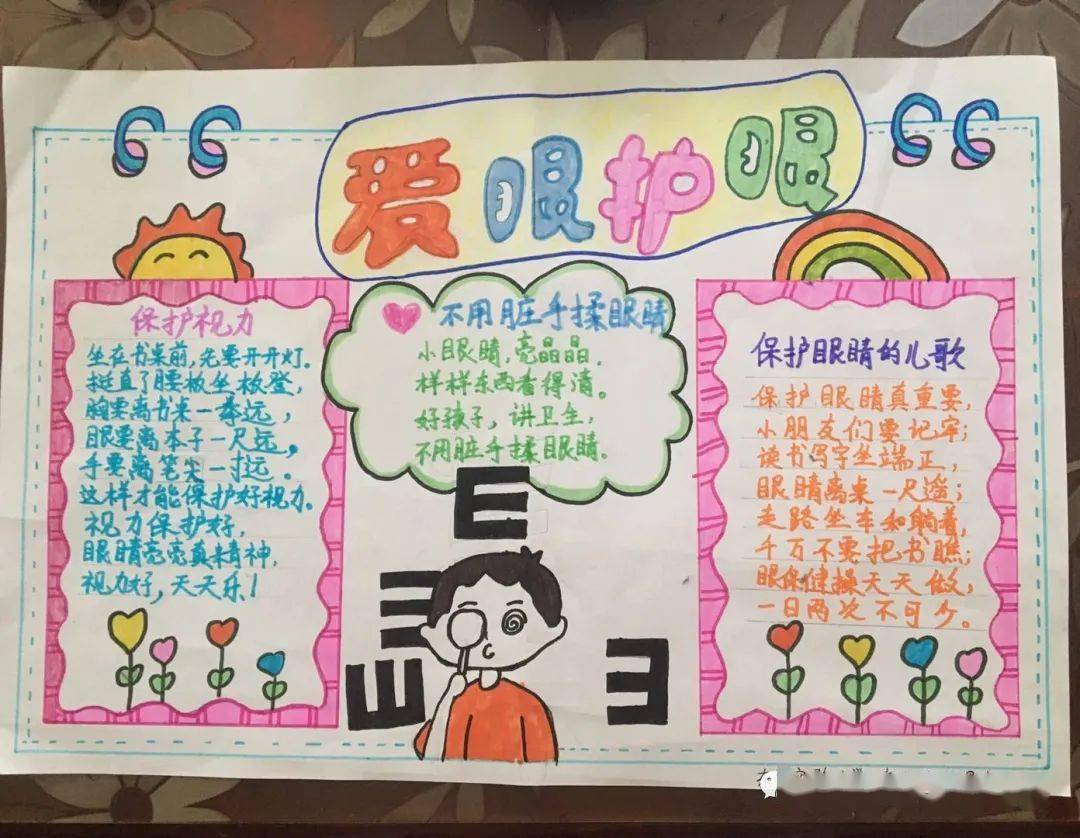 爱眼护眼
保护视力
坐在书桌前,先要开开灯.
挺直了腰板坐板登,
胸要离书桌一拳远,
眼要离本子一尺远。
手要离笔尖一寸远。
这样才能保护好视力.
视力保护好,
眼睛亮亮真精神,
视力好,天天乐!
不用脏手揉眼睛
小眼睛,亮晶晶.
样样东西看得清。
好孩子,讲卫生,
不用脏手揉眼睛。
E
E
E
E
保护眼睛的儿歌
保护眼睛真重要,
小朋友们要记牢;
读书写字坐端正,
眼睛离桌一尺遥;
走路坐车和躺着,
千万不要把书瞧;
眼保健操天天做,
一日两次不可少。